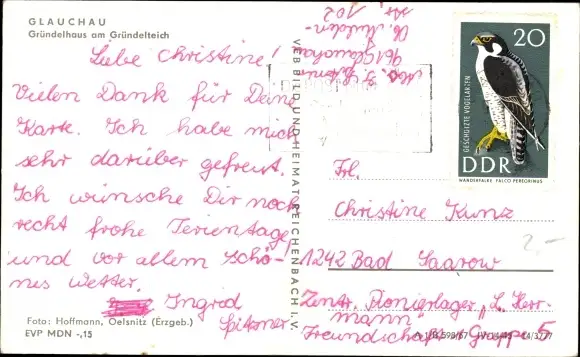 GLAUCHAU
Gründelhaus am Gründelteich
Liebe Christine!
Vielen Dank für Deine
Karte. Ich habe mich
sehr darüber gefreut.
Ich wünsche Dir noch
recht frohe Ferientage
und vor allem schö-
nes Wetter.
Ingrid
Foto: Hoffmann, Oelsnitz (Erzgeb.)
EVP MDN -,15
VEB BILD UND HEIMAT REICHENBACH I. V.
961 Glauchau
Nr. 102
20
GESCHÜTZTE VOGELARTEN
DDR
WANDERFALKE FALCO PEREGRINUS
Frl.
Christine Kunz
2,-
1242 Bad Saarow
Zentr. Pionierlager "L. Herr-
mann"
Freundschaft Gruppe 5